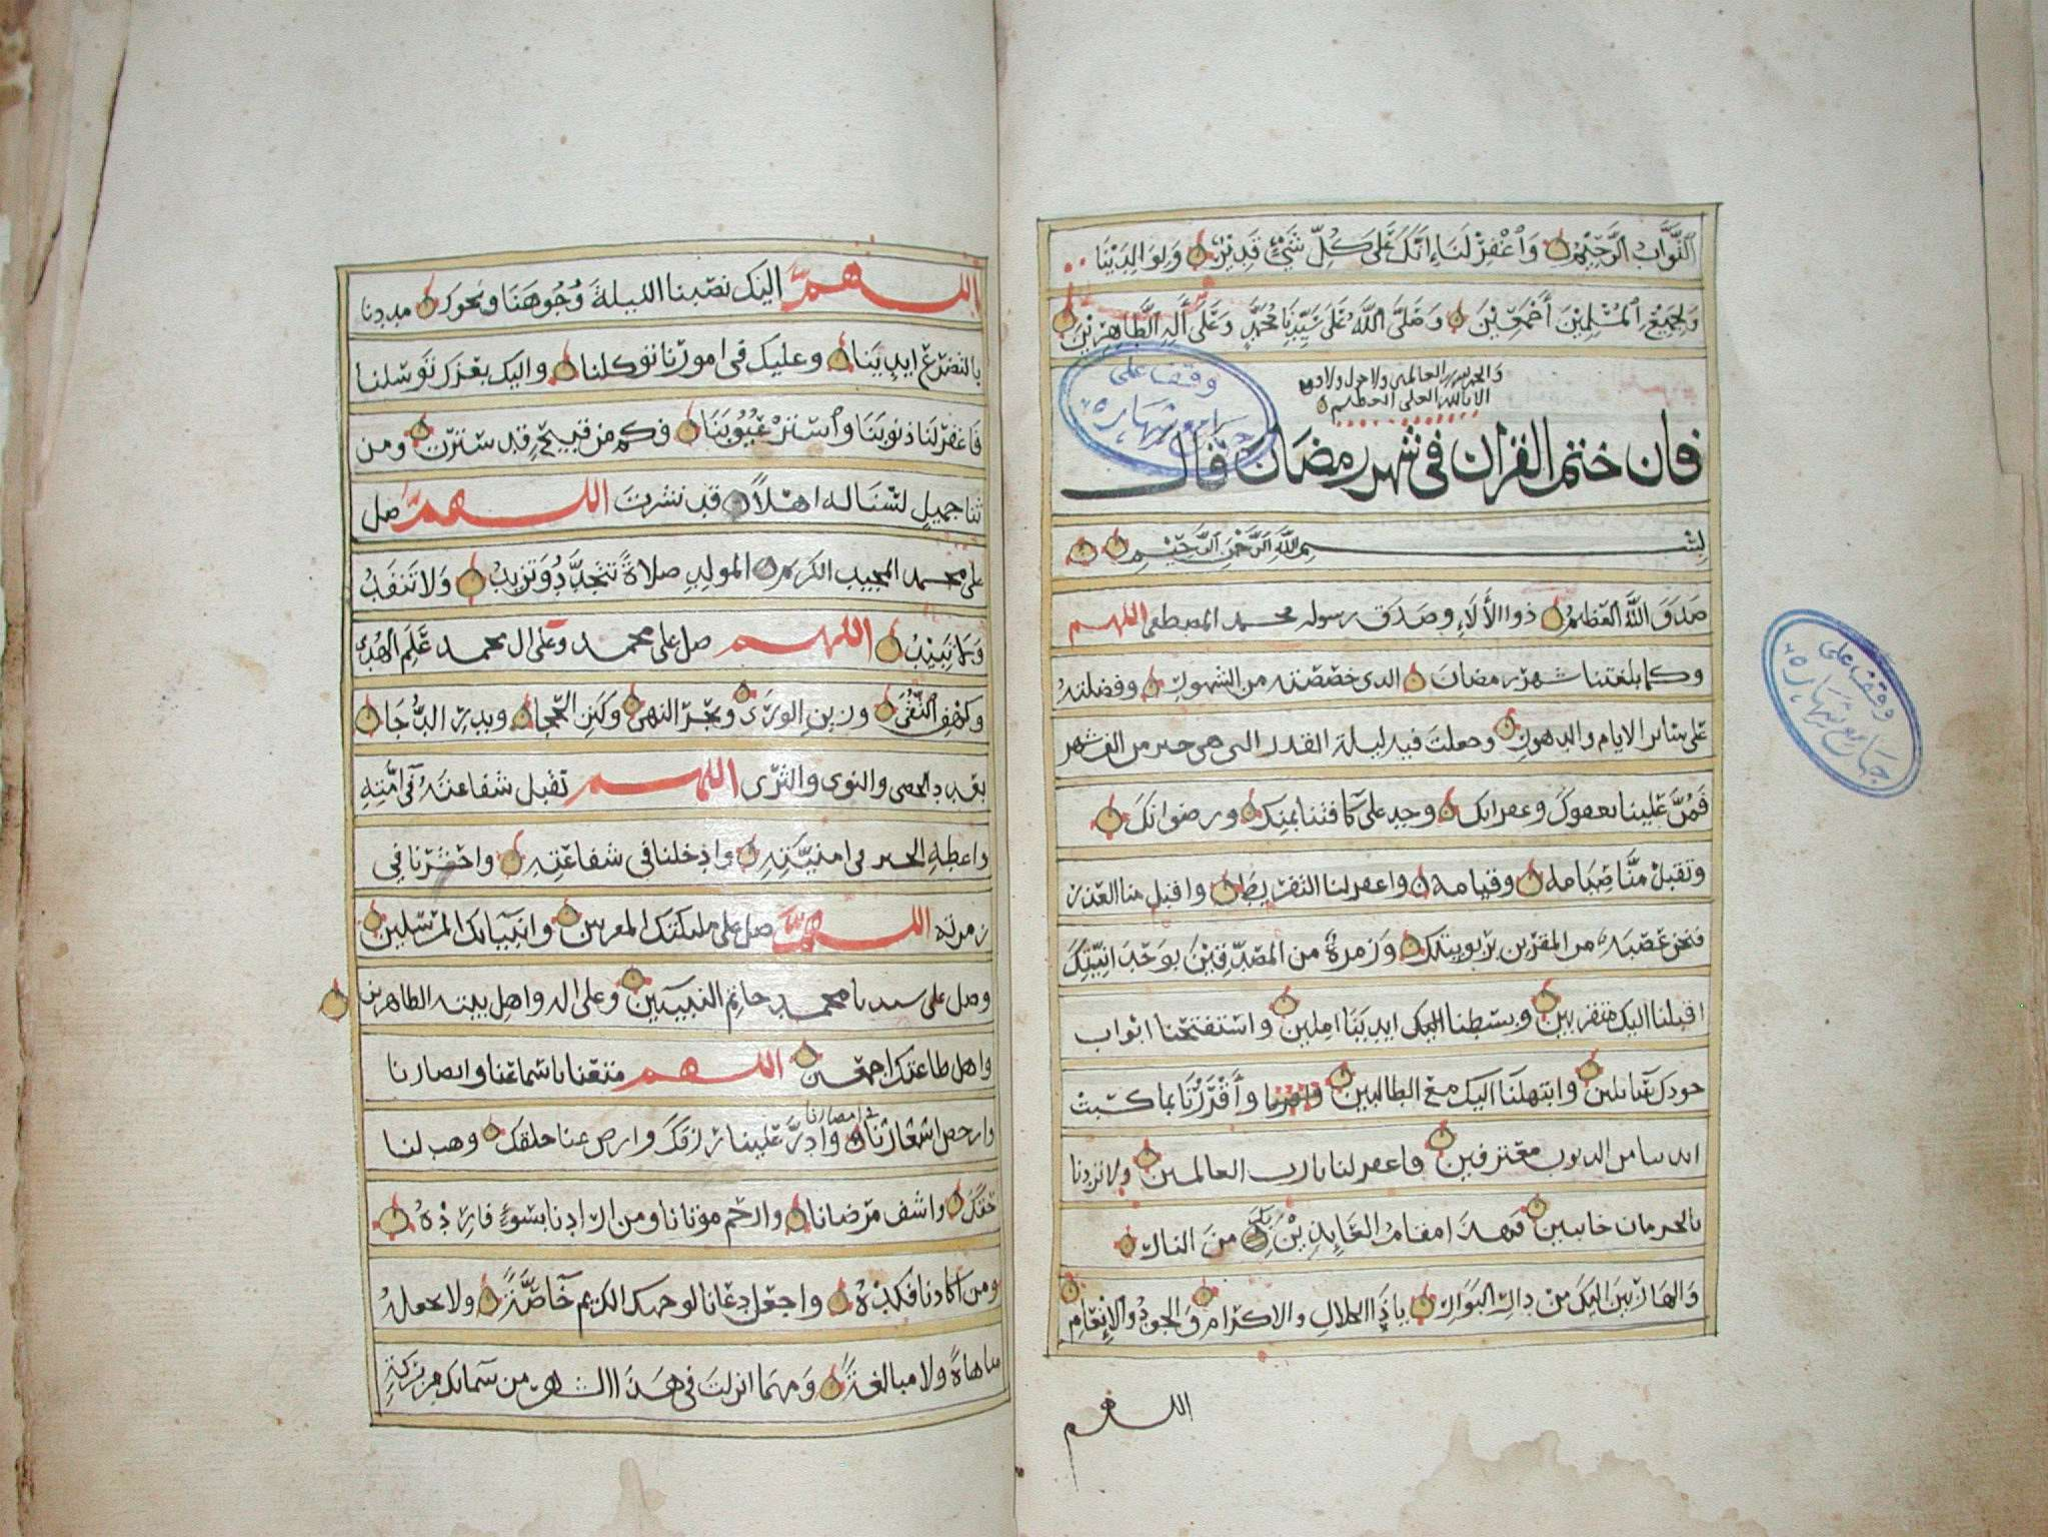 التَّوَّابُ الرَّحِيْمُ وَاغْفِرْ لَنَا اِنَّكَ عَلَى كُلِّ شَيْءٍ قَدِيْرٌ وَلِوَالِدَيْنَا
وَلِجَمِيْعِ الْمُسْلِمِيْنَ أَجْمَعِيْنَ وَصَلَّى اللَّهُ عَلَى سَيِّدِنَا مُحَمَّدٍ وَعَلَى آلِهِ الطَّاهِرِيْنَ
والحمد لله رب العالمين ولا حول ولا قوة
الا بالله العلي العظيم
فان ختم القرآن في شهر رمضان قال
بِسْمِ اللَّهِ الرَّحْمَنِ الرَّحِيْمِ
صَدَقَ اللَّهُ العَظِيْمُ ذو الألاء وصَدَق رسوله محمد المصطفى اللهم
وكما بلغتنا شهر رمضان الذي خصصته من الشهور وفضلته
على سائر الايام والدهور وجعلت فيه ليلة القدر التي هي خير من الف شهر
فَمُنَّ عَلينا بعفوك وغفرانك وجد على كافتنا بمنك ورضوانك
وتقبل منَّا صيامه وقيامه واغفر لنا التفريط واقبل منا العذر
فنحن عصبة من المقرين بربوبيتك وزمرة من المصدقين بوحدانيتك
اقبلنا اليك متقربين وبسطنا اليك ايدينا املين واستفتحنا ابواب
جودك سائلين وابتهلنا اليك مع الطالبين وأقررنا بما كسبت
ايدينا من الذنوب معترفين فاغفر لنا يا رب العالمين ولا تردنا
بالحرمان خائبين فهذا مقام العَايِذِيْن بك من النار
وَالهاربين اليك من دار البوار ياذا الجلال والاكرام والجود والانعام
اللهم
وقف على
جامع شهاره
وقف على
جامع شهاره
اللهم اليك نصبنا الليلة وُجُوهَنَا ونحوك مددنا
بالتضرع ايدينا وعليك في امورنا توكلنا واليك بعزك توسلنا
فاغفر لنا ذنوبنا واستر عُيُوبَنَا فكم من قبيح قد سترت ومن
ثنا جميل لسنا له اهلا قد نشرت اللهم صل
على محمد الحبيب الكريم المولد صلاةً تتجدّدُ وَتزيد ولا تنفد
ولا تبيد اللهم صل على محمد وعلى ال محمد عَلَمِ الهدى
وكهف التقى وزين الورى وبحر النهى وكنز الحجا وبدر الدجا
بعدد الحصى والنوى والثرى اللهم تقبل شفاعته في امته
واعطه الخير في امنيته وادخلنا في شفاعته واحشرنا في
زمرته اللهم صل على ملئكتك المقربين وانبيائك المرسلين
وصل على سيدنا محمد خاتم النبيين وعلى اله واهل بيته الطاهرين
واهل طاعتك اجمعين اللهم متعنا باسماعنا وابصارنا
وارخص اسعارنا في امصارنا وادر علينا رزقك وارض عنا خلقك وهب لنا
حقك واشف مرضانا وارحم موتانا ومن ارادنا بسوء فارده
ومن كادنا فكده واجعل دعانا لوجهك الكريم خاصَّةً ولا تجعله
مباهاةً ولا مبالغة وَمهما انزلت في هذا الشهر من سمائك من بركة